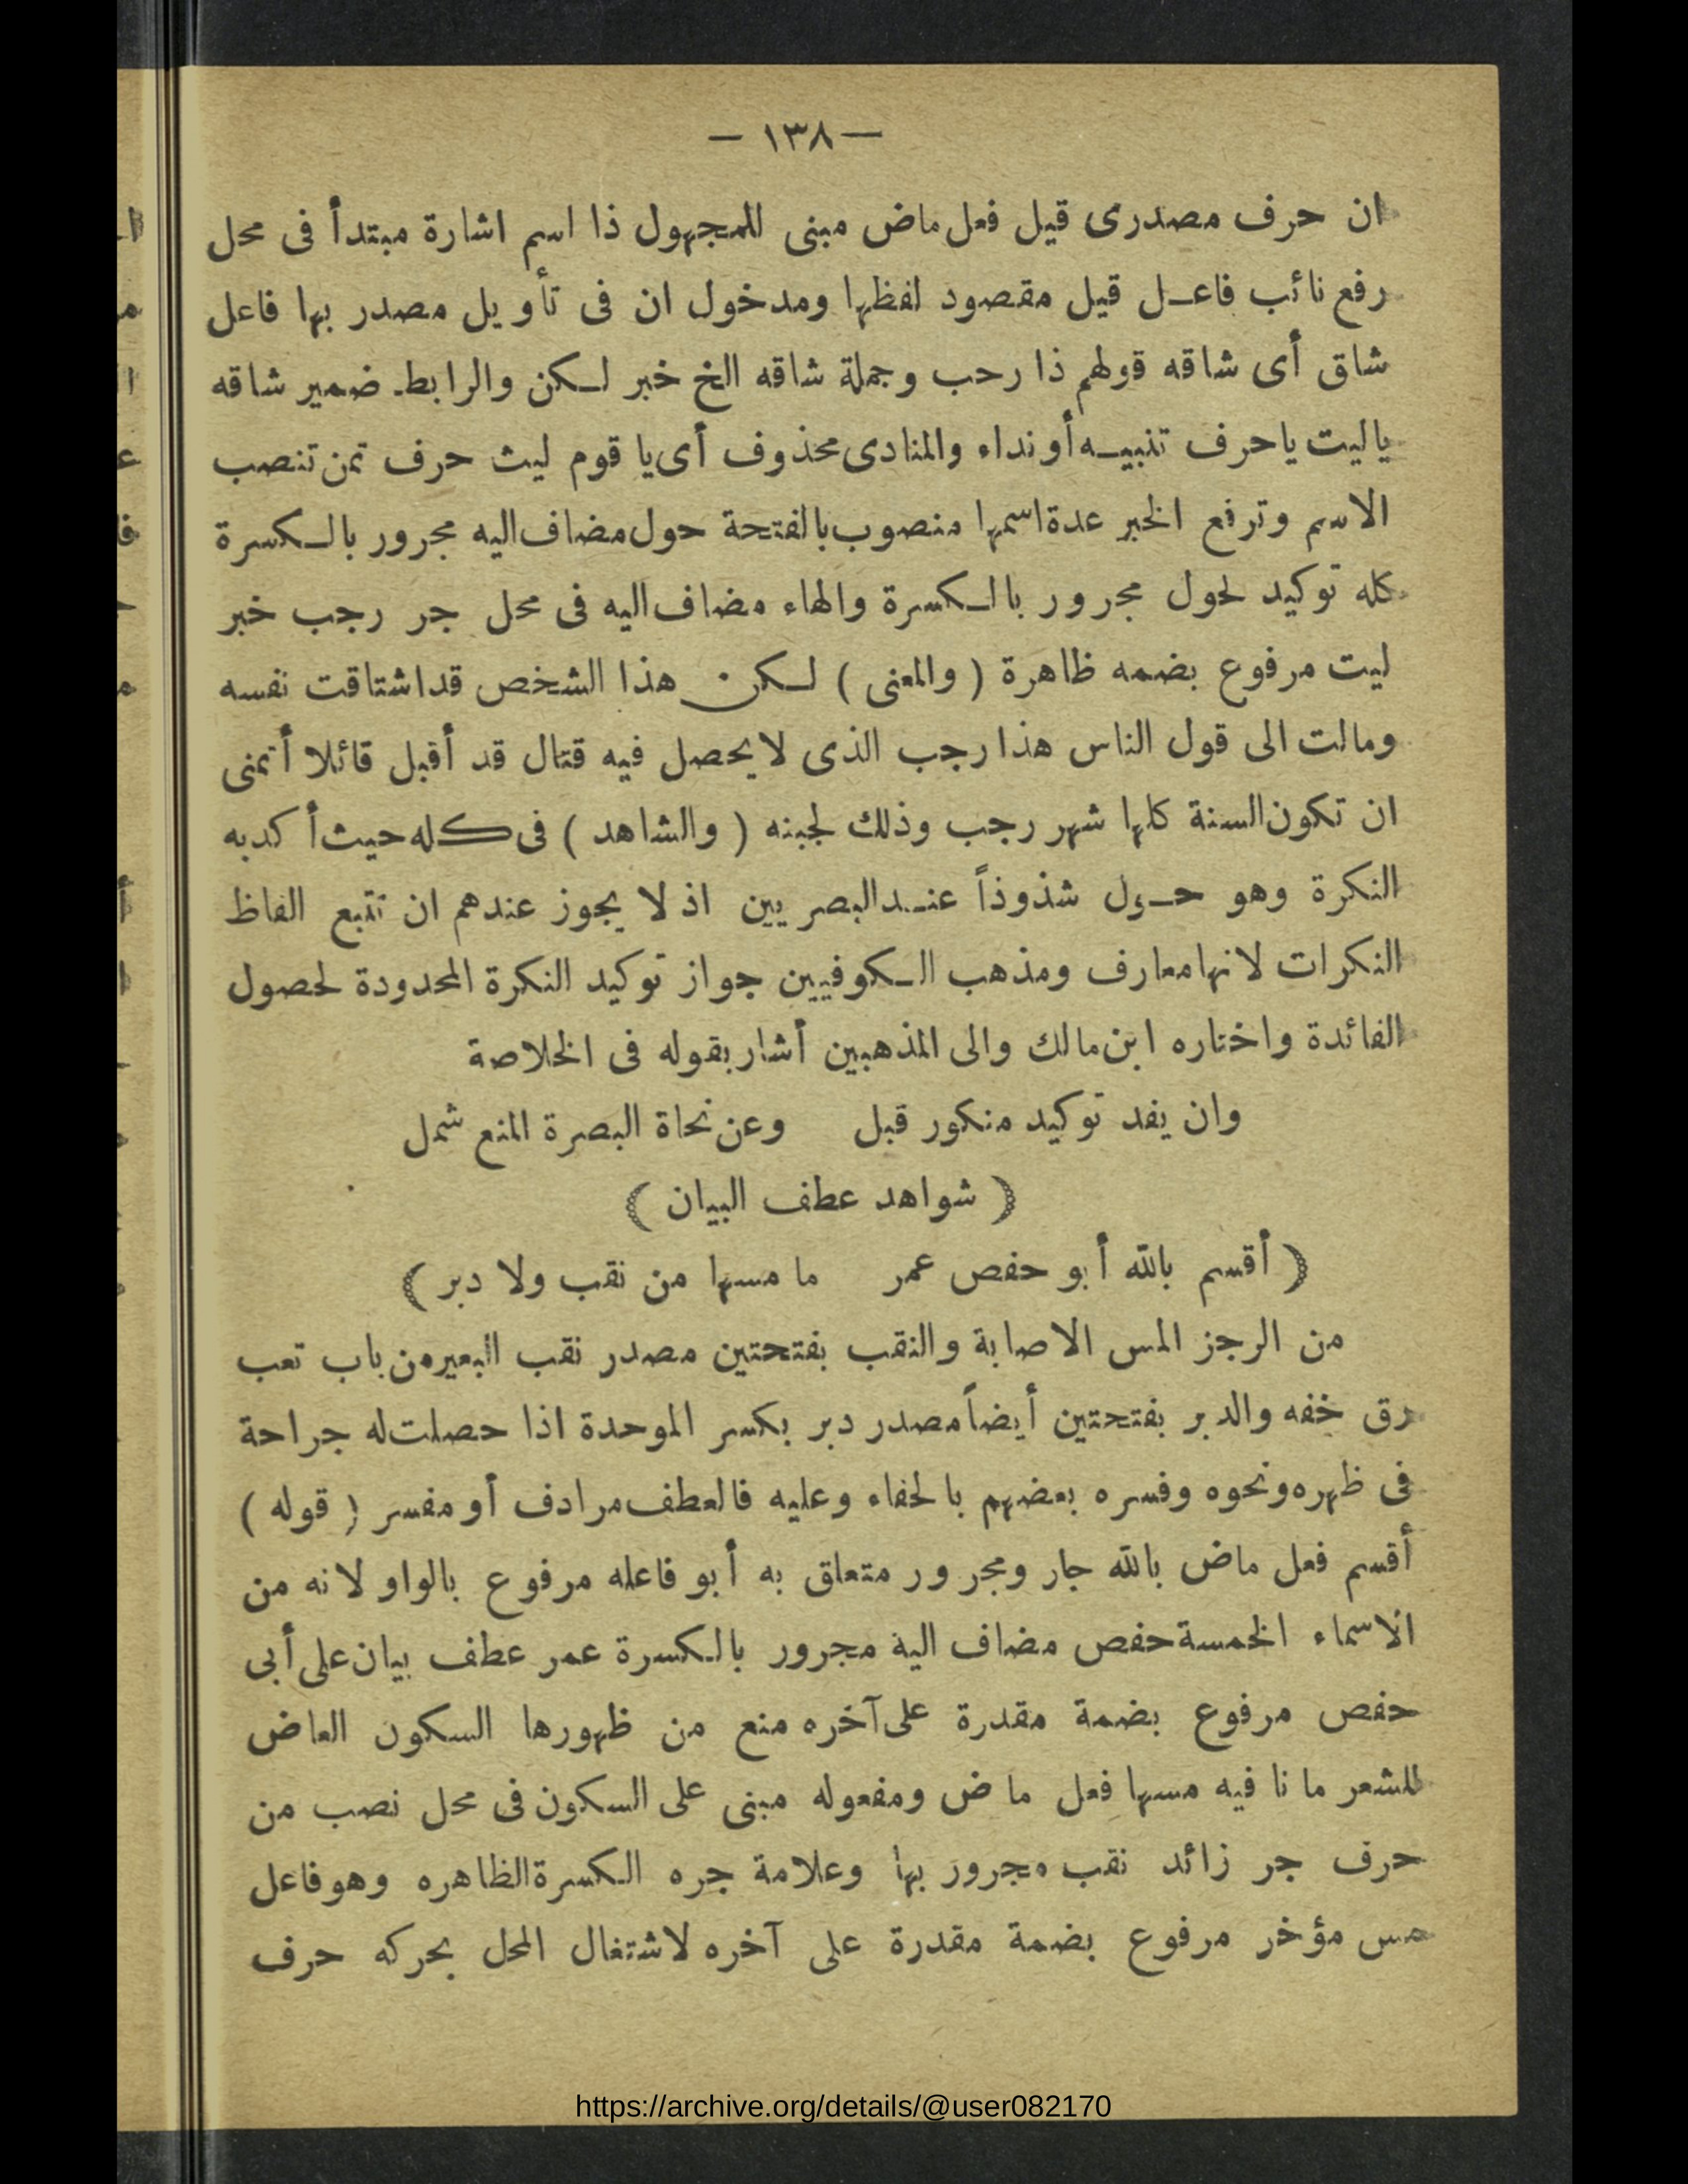 — ١٣٨ —
ان حرف مصدرى قيل فعل ماض مبنى للمجهول ذا اسم اشارة مبتدأ فى محل
رفع نائب فاعل قيل مقصود لفظها ومدخول ان فى تأويل مصدر بها فاعل
شاق أى شاقه قولهم ذا رحب وجملة شاقه الخ خبر لكن والرابط ضمير شاقه
ياليت ياحرف تنبيه أو نداء والمنادى محذوف أى يا قوم ليث حرف تمن تنصب
الاسم وترفع الخبر عدة اسمها منصوب بالفتحة حول مضاف اليه مجرور بالكسرة
كله توكيد لحول مجرور بالكسرة والهاء مضاف اليه فى محل جر رجب خبر
ليت مرفوع بضمه ظاهرة ( والمعنى ) لكن هذا الشخص قد اشتاقت نفسه
ومالت الى قول الناس هذا رجب الذى لايحصل فيه قتال قد أقبل قائلا أتمنى
ان تكون السنة كلها شهر رجب وذلك لجبنه ( والشاهد ) فى كله حيث أكد به
النكرة وهو حول شذوذاً عند البصريين اذ لا يجوز عندهم ان تتبع الفاظ
النكرات لانها معارف ومذهب الكوفيين جواز توكيد النكرة المحدودة لحصول
الفائدة واختاره ابن مالك والى المذهبين أشار بقوله فى الخلاصة
وان يفد توكيد منكور قبل وعن نحاة البصرة المنع شمل
( شواهد عطف البيان )
( أقسم بالله أبو حفص عمر ما مسها من نقب ولا دبر )
من الرجز المس الاصابة والنقب بفتحتين مصدر نقب البعير من باب تعب
رق خفه والدبر بفتحتين أيضاً مصدر دبر بكسر الموحدة اذا حصلت له جراحة
فى ظهره ونحوه وفسره بعضهم بالحفاء وعليه فالعطف مرادف أو مفسر ( قوله )
أقسم فعل ماض بالله جار ومجرور متعلق به أبو فاعله مرفوع بالواو لانه من
الاسماء الخمسة حفص مضاف الية مجرور بالكسرة عمر عطف بيان على أبى
حفص مرفوع بضمة مقدرة على آخره منع من ظهورها السكون العاض
للشعر ما نا فيه مسها فعل ماض ومفعوله مبنى على السكون فى محل نصب من
حرف جر زائد نقب مجرور بها وعلامة جره الكسرة الظاهره وهو فاعل
مس مؤخر مرفوع بضمة مقدرة على آخره لاشتغال المحل بحركه حرف
https://archive.org/details/@user082170